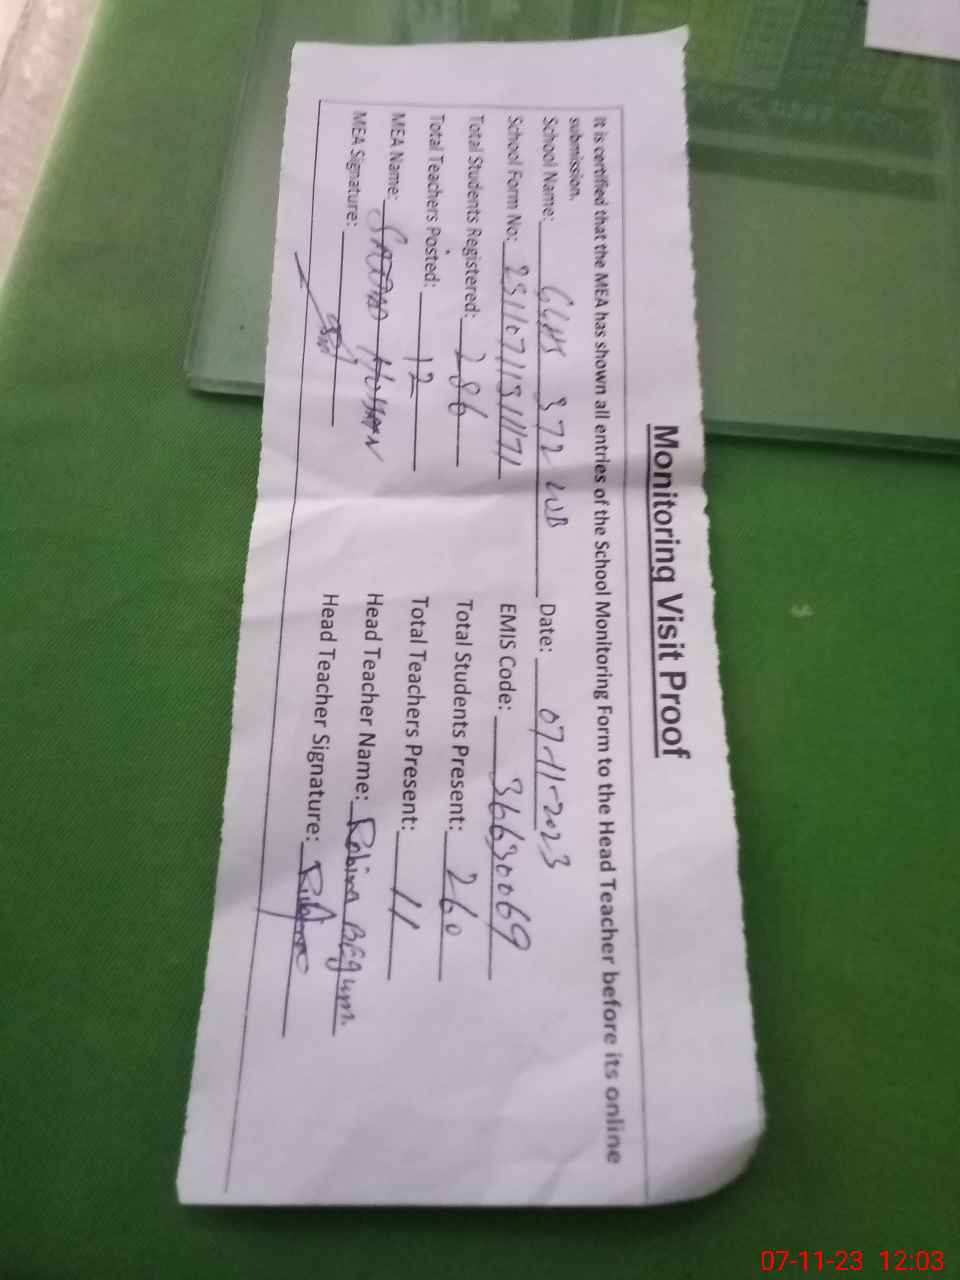 Monitoring Visit Proof
It is certified that the MEA has shown all entries of the School Monitoring Form to the Head Teacher before its online
submission.
School Name: 372 WB Date: 07-11-2023
School Form No: EMIS Code: 36630069
Total Students Registered: 286 Total Students Present: 260
Total Teachers Posted: 12 Total Teachers Present: 11
MEA Name: Head Teacher Name: Robina Begum
MEA Signature: Head Teacher Signature:
07-11-23 12:03